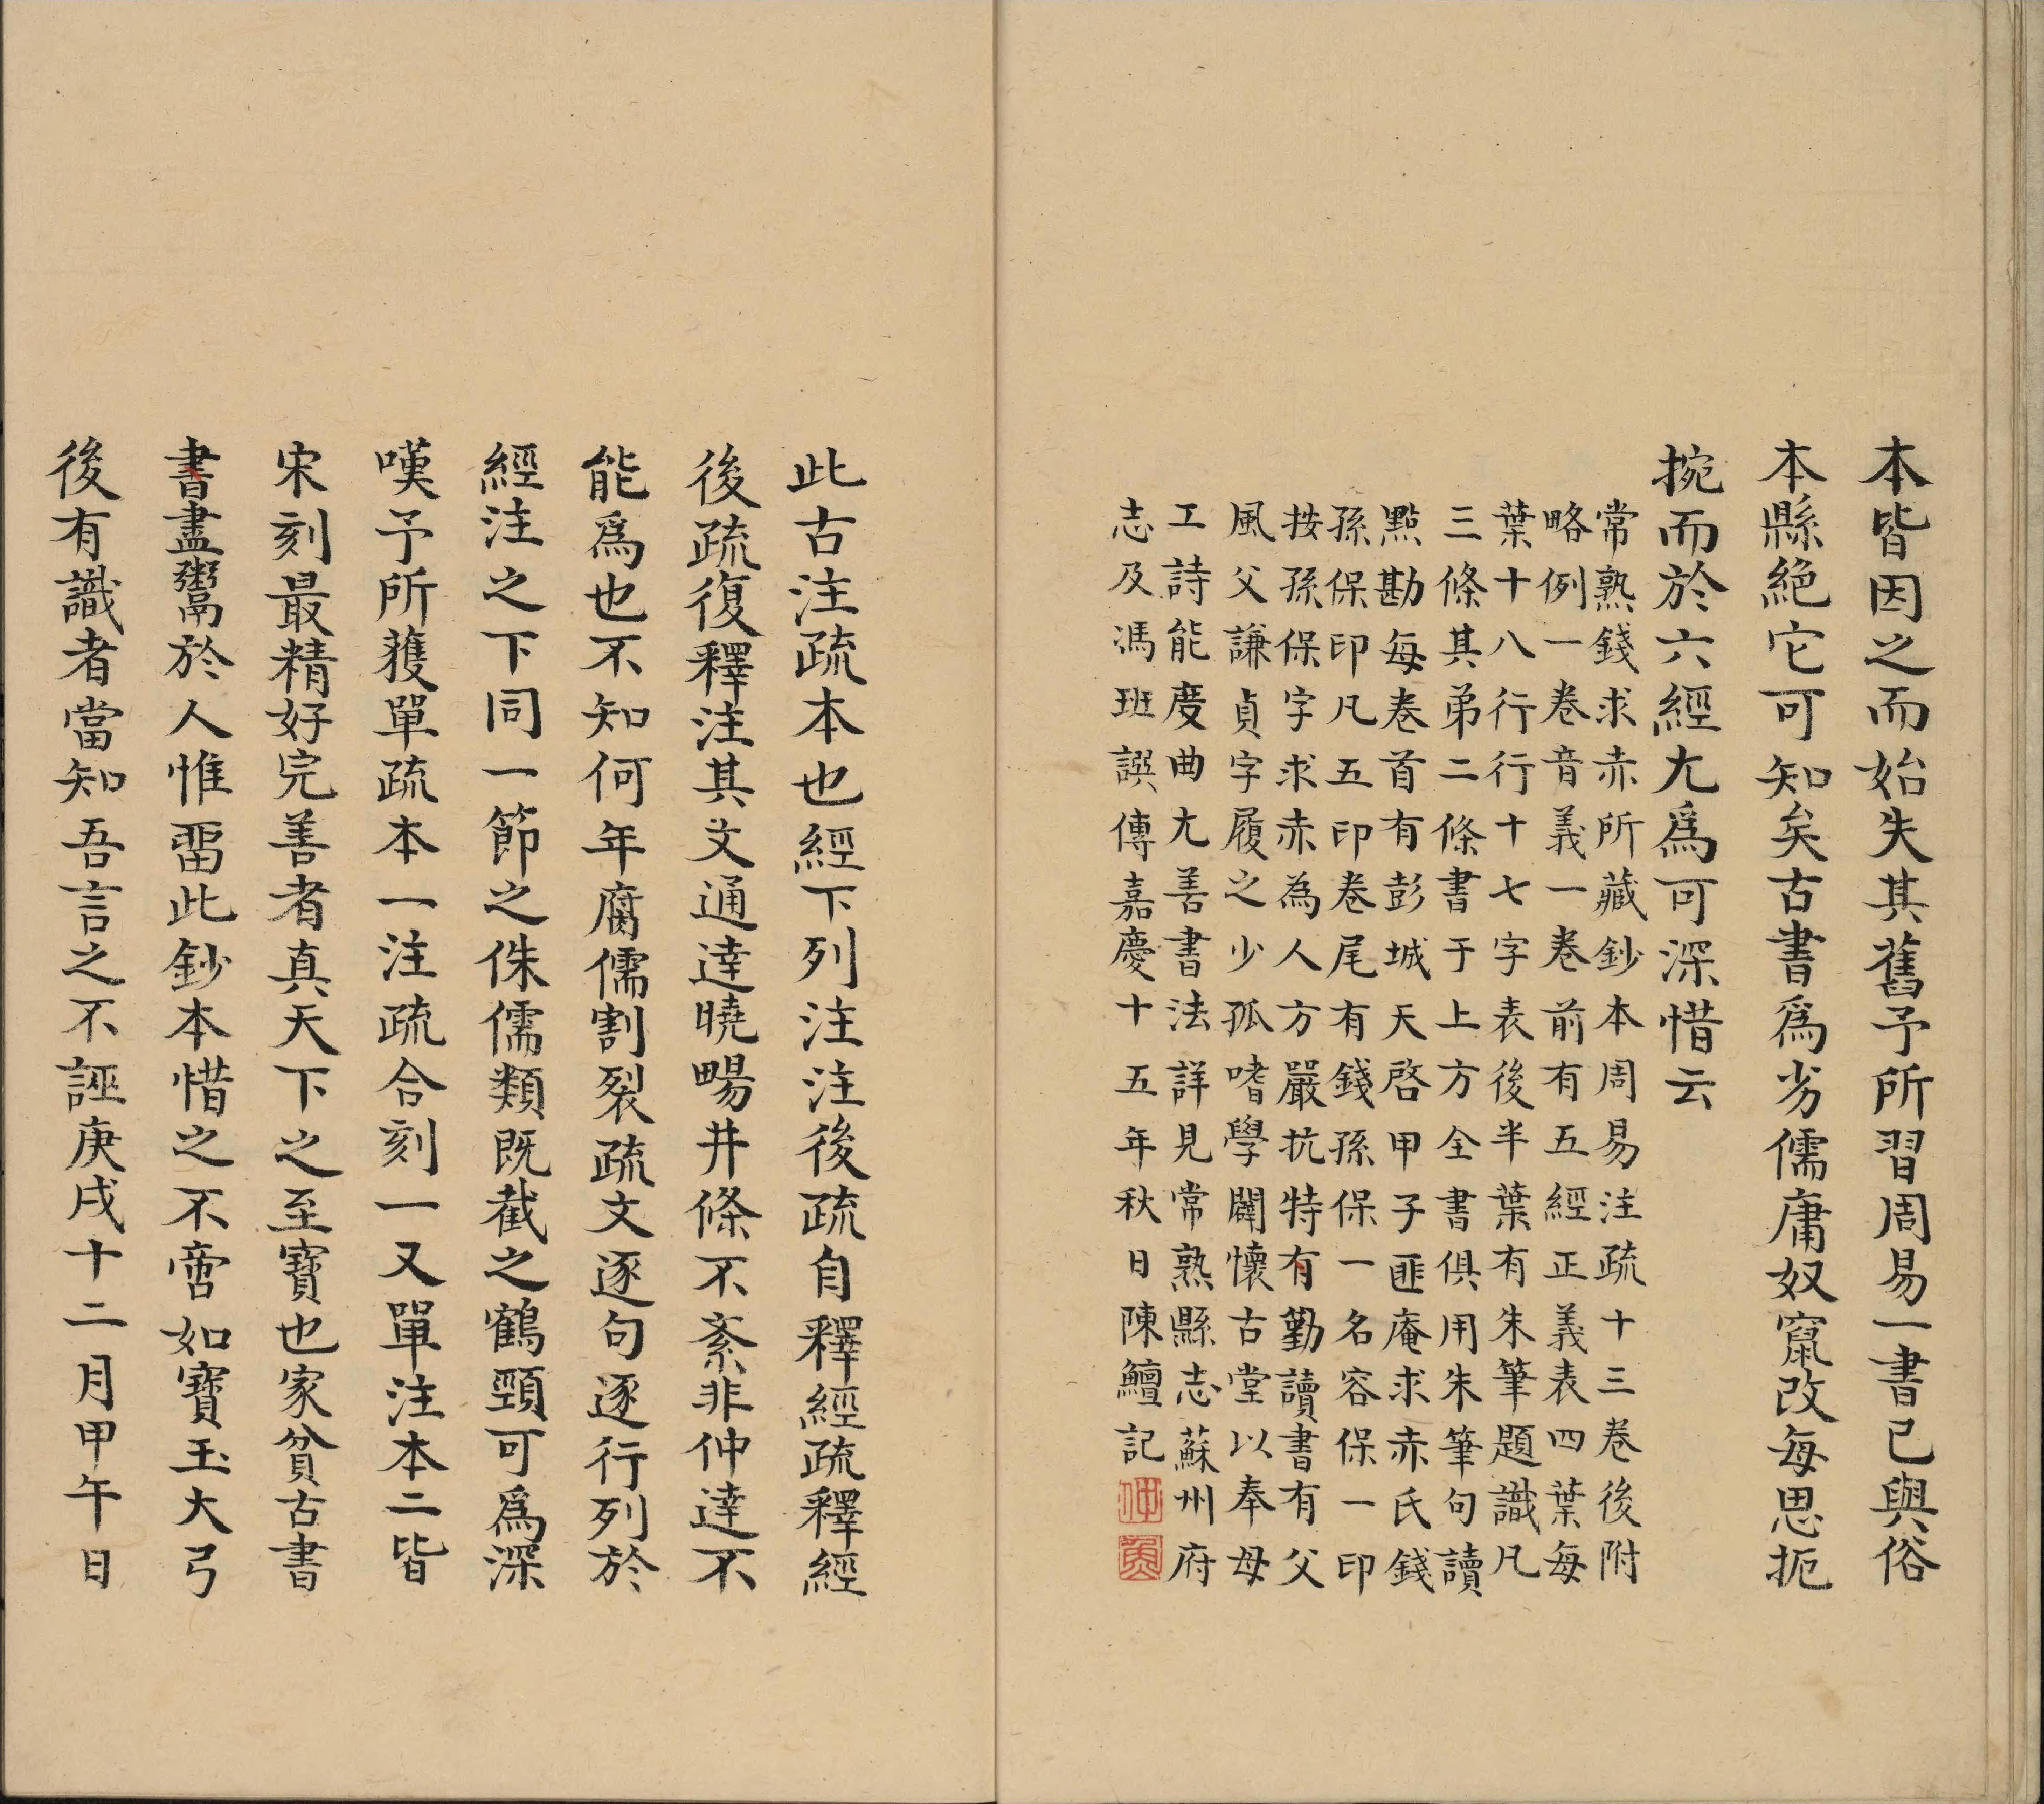 本皆因之而始失其舊予所習周易一書已與俗
本縣絕它可知矣古書爲劣儒庸奴竄改每思扼
捥而於六經尢爲可深惜云
常熟錢求赤所藏鈔本周易注疏十三卷後附
略例一卷音義一卷前有五經正義表四葉每
葉十八行行十七字表後半葉有朱筆題識凡
三條其弟二條書于上方全書俱用朱筆句讀
㸃勘每卷首有彭城天啓甲子匪庵求赤氏錢
孫保印凡五印卷尾有錢孫保一名容保一印
按孫保字求赤為人方嚴抗特有勤讀書有父
風父謙貞字履之少孤嗜學闢懷古堂以奉母
工詩能度曲尢善書法詳見常熟縣志蘇州府
志及馮班譔傳嘉慶十五年秋日陳鱣記
仲魚
此古注疏本也經下列注注後疏自釋經疏釋經
後疏復釋注其文通達曉暢井條不紊非仲達不
能爲也不知何年腐儒割裂疏文逐句逐行列於
經注之下同一節之侏儒類既截之鶴頸可爲深
嘆予所獲單疏本一注疏合刻一又單注本二皆
宋刻最精好完善者真天下之至寶也家貧古書
書盡鬻於人惟畱此鈔本惜之不啻如寶玉大弓
後有識者當知吾言之不誣庚戌十二月甲午日